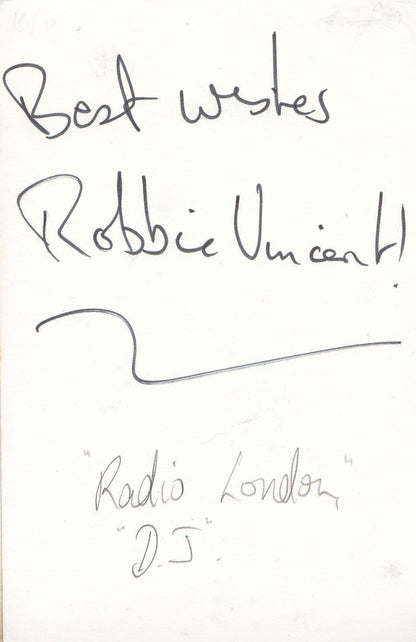 Best wishes
Robbie Vincent!
"Radio London,"
"D.J".